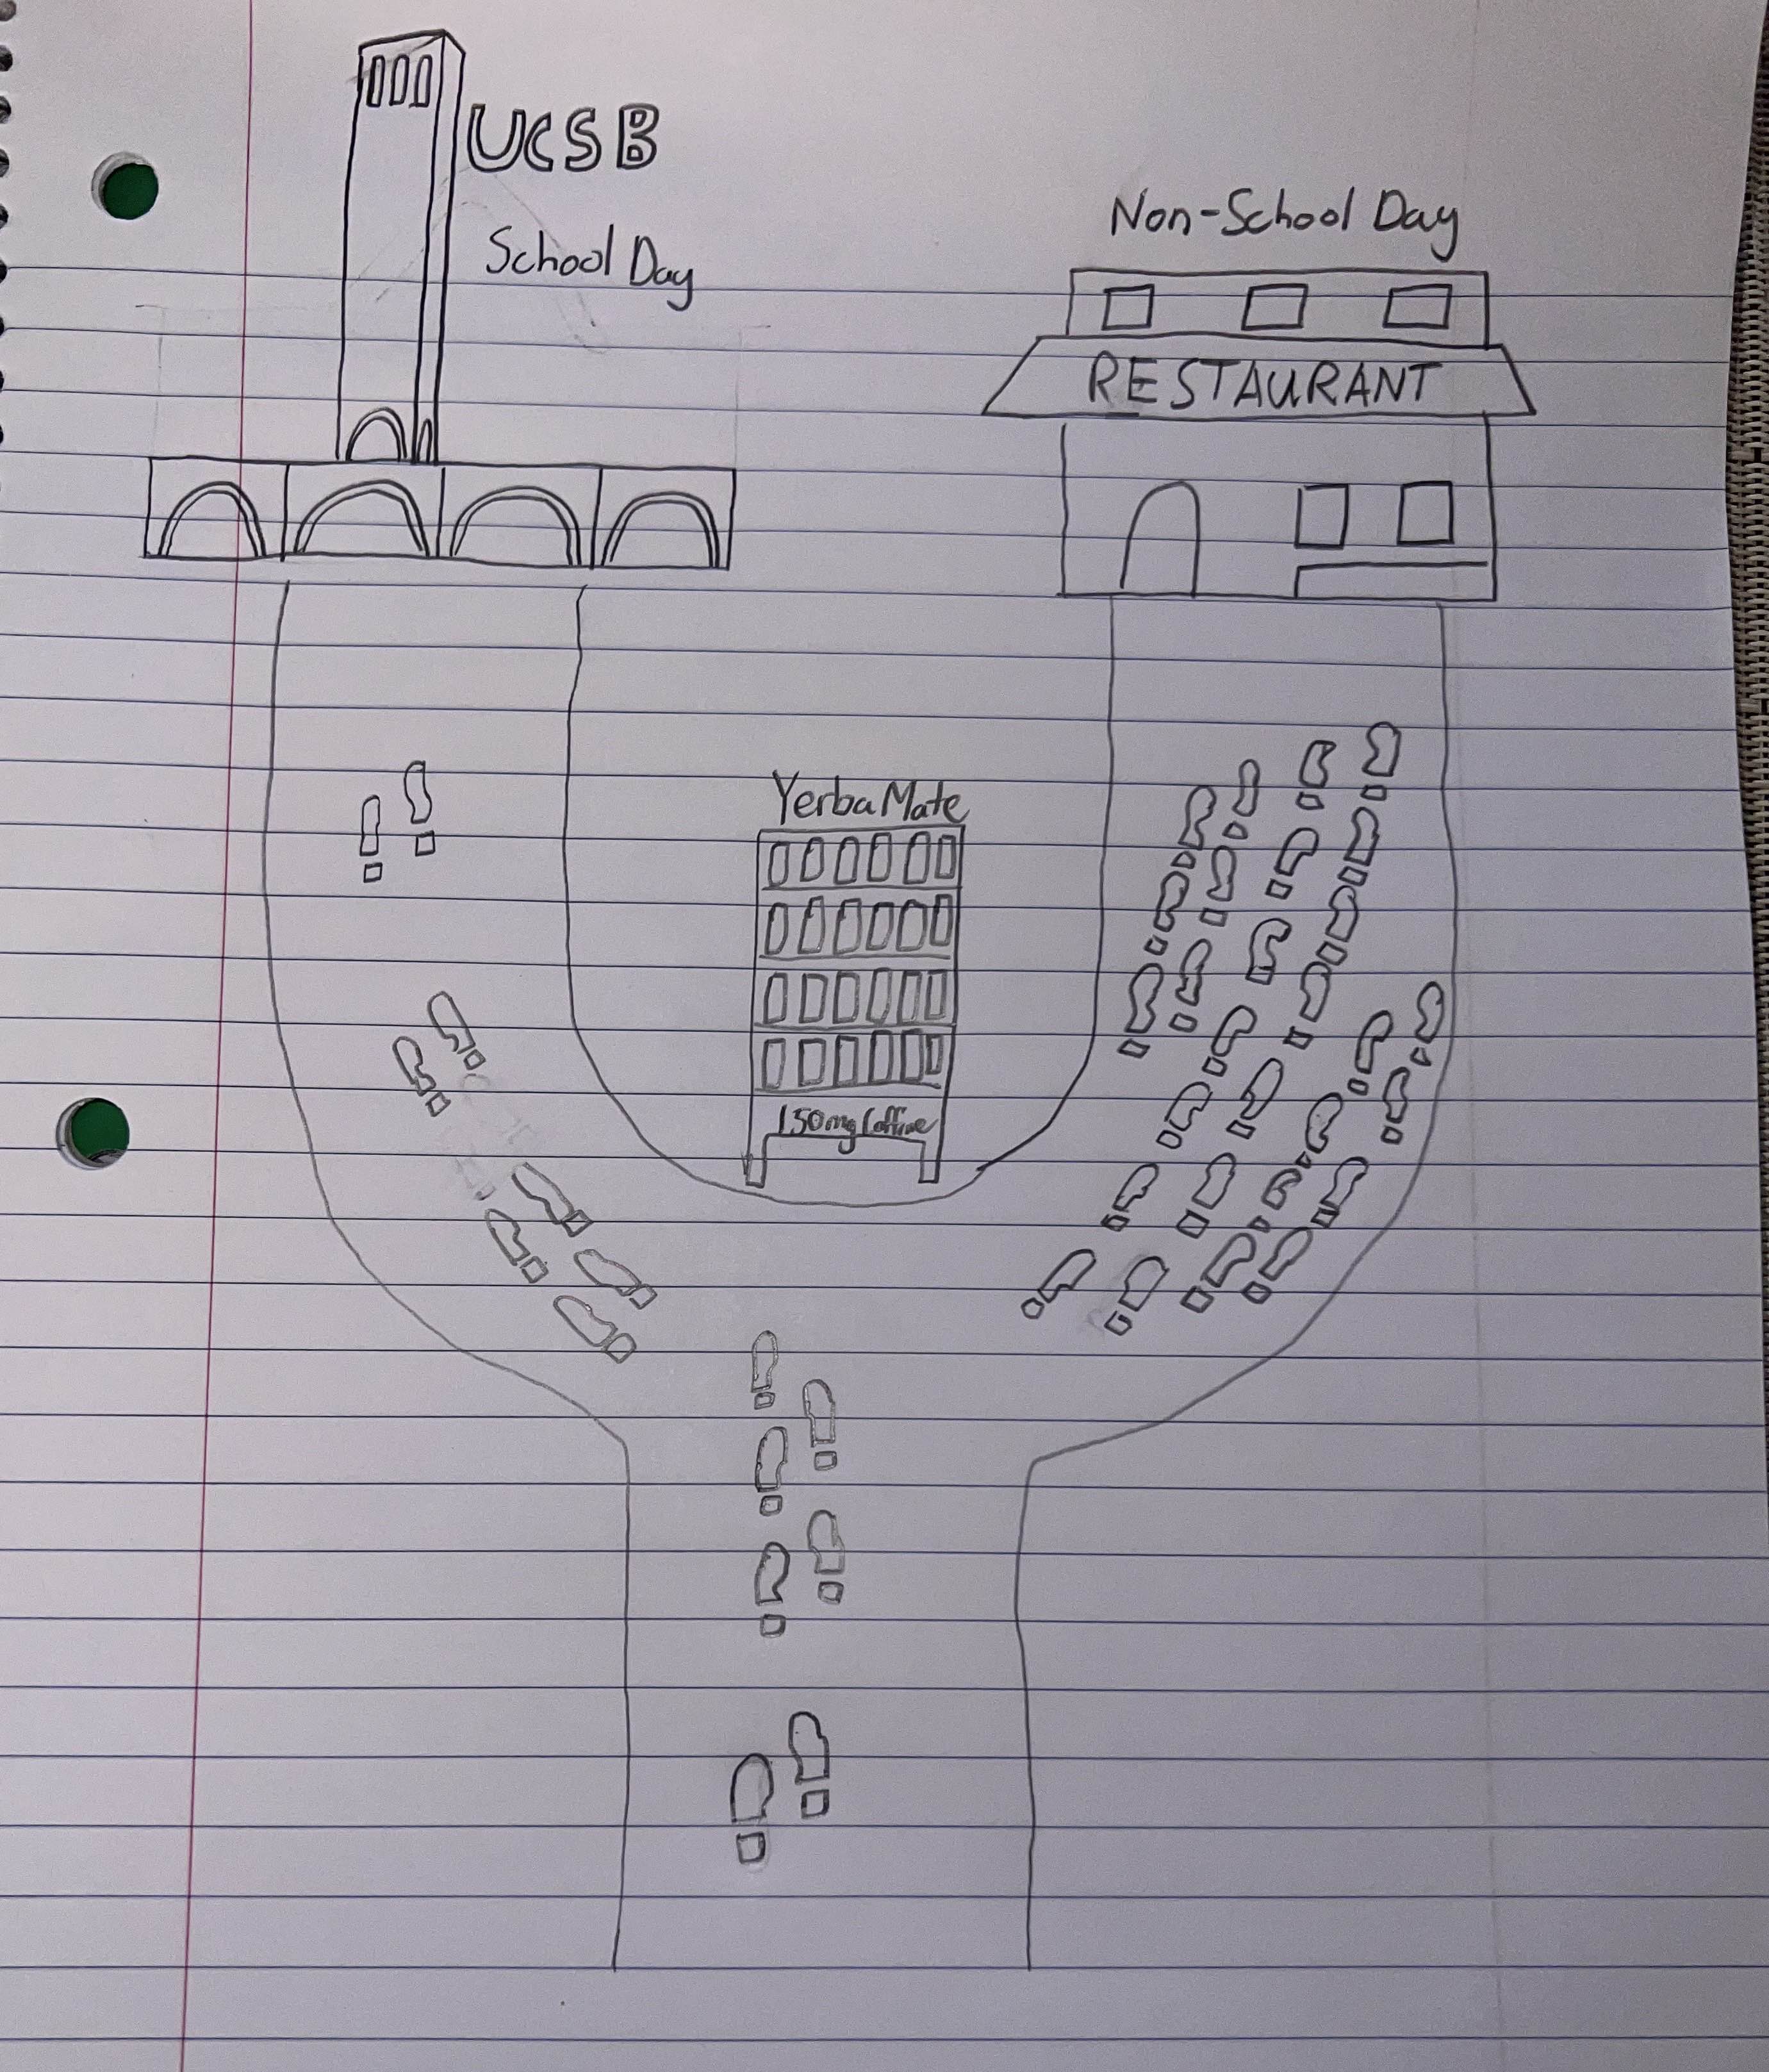 UCSB
School Day
Non-School Day
RESTAURANT
Yerba Mate
150mg Caffine